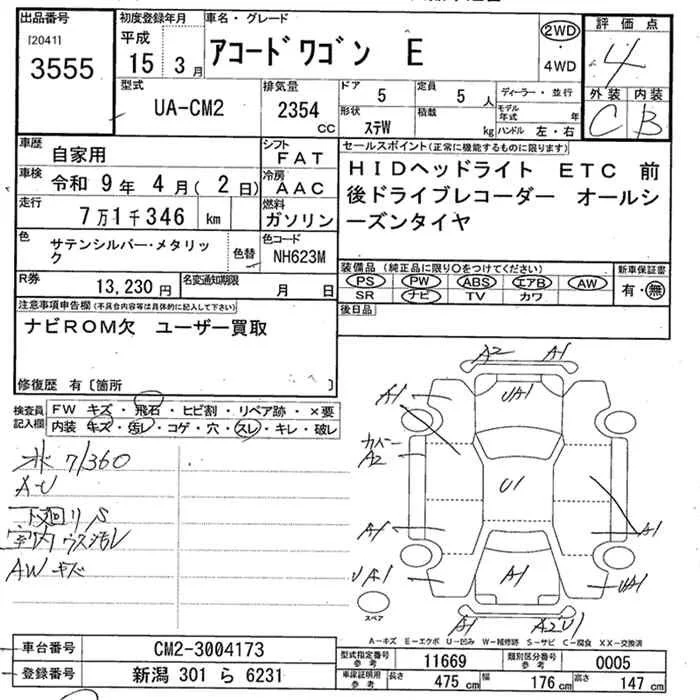 出品番号
[2041]
3555
初度登録年月
平成
15 3月
車名・グレード
アコードワゴン E
2WD
・
4WD
評価点
4
外装 内装
C B
型式
UA-CM2
排気量
2354 cc
ドア
5
定員
5 人
形状
ステW
積載
kg
ディーラー・並行
モデル年式 年
ハンドル 左・右
車歴
自家用
シフト
FAT
車検
令和 9年 4月(2日)
冷房
AAC
走行
7万1千346 km
燃料
ガソリン
色
サテンシルバー・メタリック
色替
色コード
NH623M
R券
13,230円
名変通知期限
月 日
セールスポイント(正常に機能するものに限ります)
HIDヘッドライト ETC 前
後ドライブレコーダー オールシ
ーズンタイヤ
装備品(純正品に限り○をつけてください)
PS PW ABS エアB AW
SR ナビ TV カワ
新車保証書
有・無
後日品
注意事項申告欄(不具合内容等は具体的に記入して下さい)
ナビROM欠 ユーザー買取
修復歴 有〔箇所 〕
検査員記入欄
FW キズ・飛石・ヒビ割・リペア跡・×要
内装 キズ・汚レ・コゲ・穴・スレ・キレ・破レ
71360
A-U
下廻りS
室内ウス汚レ
AWキズ
A2 A1
A1
UA1
カバー
A2
U1
A1
A1
UA1
A1
UA1
A1
A2U1
スペア
A-キズ E-エクボ U-凹み W-補修跡 S-サビ C-腐食 XX-交換済
車台番号
CM2-3004173
登録番号
新潟 301 ら 6231
型式指定番号
参考
11669
類別区分番号
参考
0005
車庫証明用
参考
長さ
475 cm
幅
176 cm
高さ
147 cm